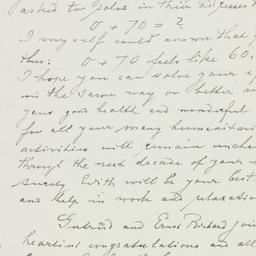 asked to solve in their addresses
0 + 70 = ?
I myself could answer that
thus: 0 + 70 feels like 60.
I hope you can solve your
in the same way or better
your good health and wonderful
for all your many humanitarian
activities will remain
through the next decade of your
surely Edith will be your best
and help in work and relaxation
Gertrud and Ernst Richard join
heartiest congratulations and all